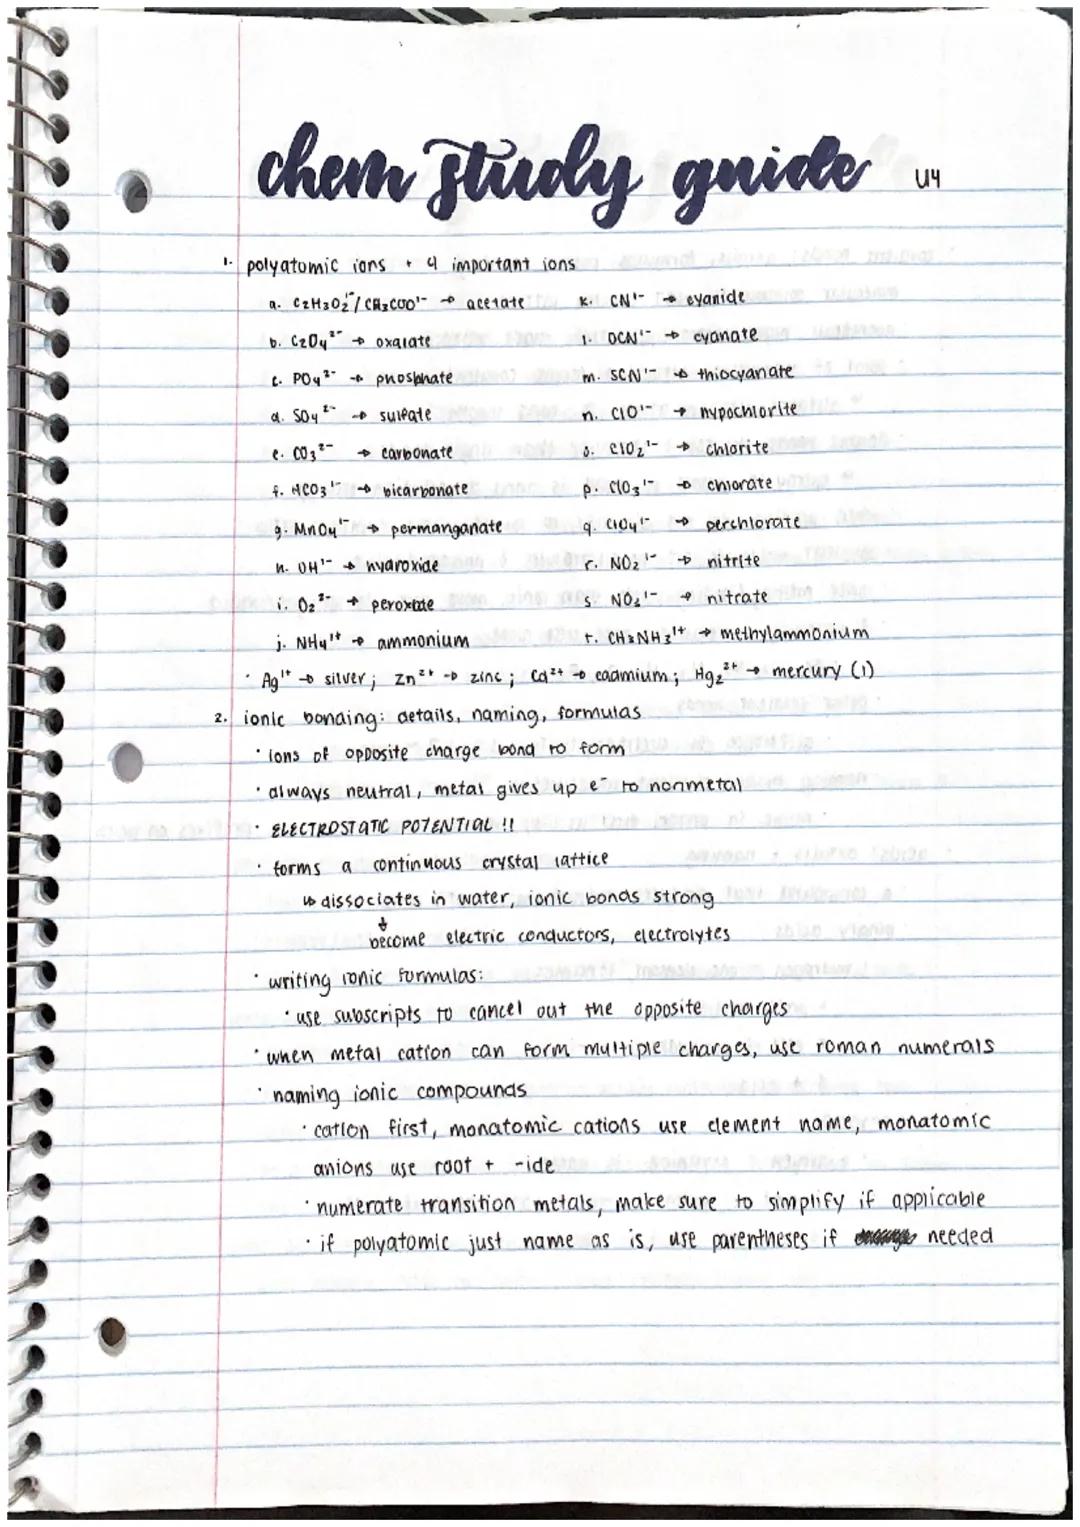 chem study guide U4
1. polyatomic ions + 4 important ions
a. C₂H₃O₂¹⁻ / CH₃COO¹⁻ → acetate
b. C₂O₄²⁻ → oxalate
c. PO₄³⁻ → phosphate
d. SO₄²⁻ → sulfate
e. CO₃²⁻ → carbonate
f. HCO₃¹⁻ → bicarbonate
g. MnO₄¹⁻ → permanganate
h. OH¹⁻ → hydroxide
i. O₂²⁻ → peroxide
j. NH₄¹⁺ → ammonium
k. CN¹⁻ → cyanide
l. OCN¹⁻ → cyanate
m. SCN¹⁻ → thiocyanate
n. ClO¹⁻ → hypochlorite
o. ClO₂¹⁻ → chlorite
p. ClO₃¹⁻ → chlorate
q. ClO₄¹⁻ → perchlorate
r. NO₂¹⁻ → nitrite
s. NO₃¹⁻ → nitrate
t. CH₃NH₃¹⁺ → methylammonium
· Ag¹⁺ → silver; Zn²⁺ → zinc; Cd²⁺ → cadmium; Hg₂²⁺ → mercury (I)
2. ionic bonding: details, naming, formulas
· ions of opposite charge bond to form
· always neutral, metal gives up e⁻ to nonmetal
· ELECTROSTATIC POTENTIAL !!
· forms a continuous crystal lattice
↳ dissociates in water, ionic bonds strong
↓
become electric conductors, electrolytes
· writing ionic formulas:
· use subscripts to cancel out the opposite charges
· when metal cation can form multiple charges, use roman numerals
· naming ionic compounds
· cation first, monatomic cations use element name, monatomic
anions use root + -ide
· numerate transition metals, make sure to simplify if applicable
· if polyatomic just name as is, use parentheses if needed